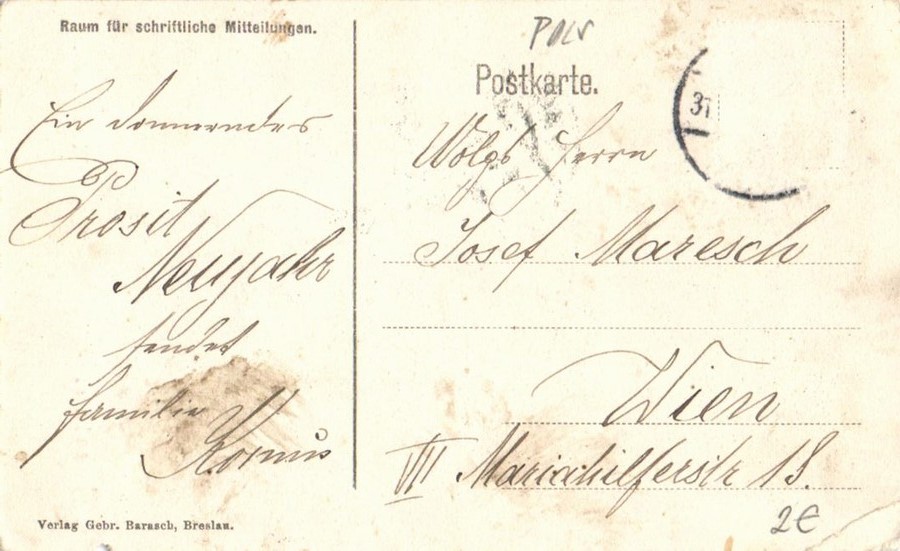 Raum für schriftliche Mitteilungen.
Ein donnerndes
Prosit
Neujahr
sendet
Familie
Kornis
Verlag Gebr. Barasch, Breslau.
Postkarte.
31
Herrn
Josef Maresch
Wien
VII Mariahilferstr 18.
2€